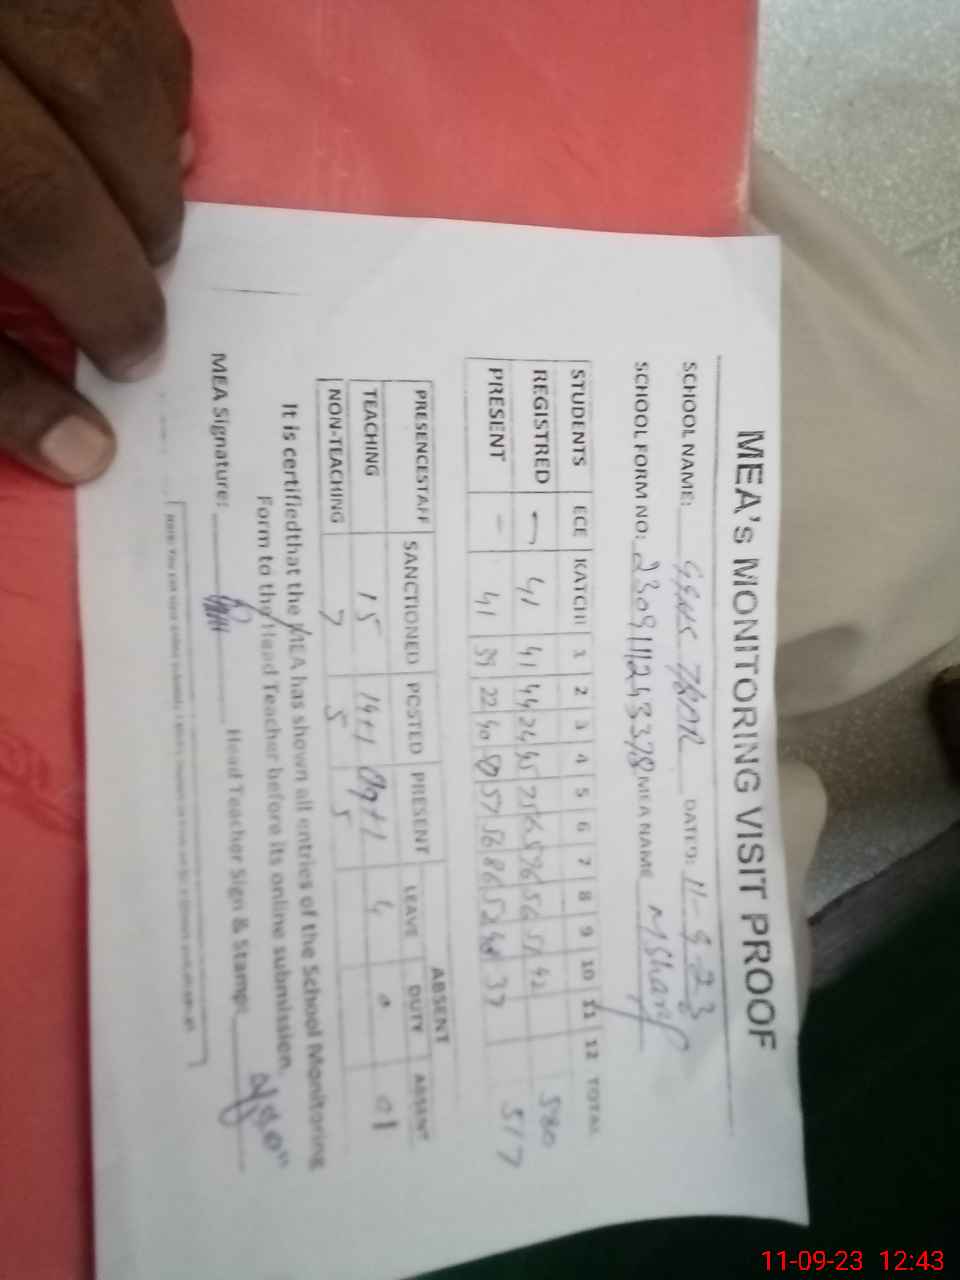 MEA's MONITORING VISIT PROOF
SCHOOL NAME: DATED: 11-9-23
SCHOOL FORM NO: 230911243378 MEA NAME M Sharif
STUDENTS ECE KATCHI 1 2 3 4 5 6 7 8 9 10 11 12 TOTAL
REGISTRED - 41 41 44 24 45 42 580
PRESENT - 41 39 22 40 57 56 37 517
ABSENT
PRESENCESTAFF SANCTIONED POSTED PRESENT LEAVE DUTY ABSENT
TEACHING 15 14+1 09+1 4 0 01
NON-TEACHING 7 5 5
It is certifiedthat the MEA has shown all entries of the School Monitoring
Form to the Head Teacher before its online submission.
MEA Signature: Head Teacher Sign & Stamp:
11-09-23 12:43